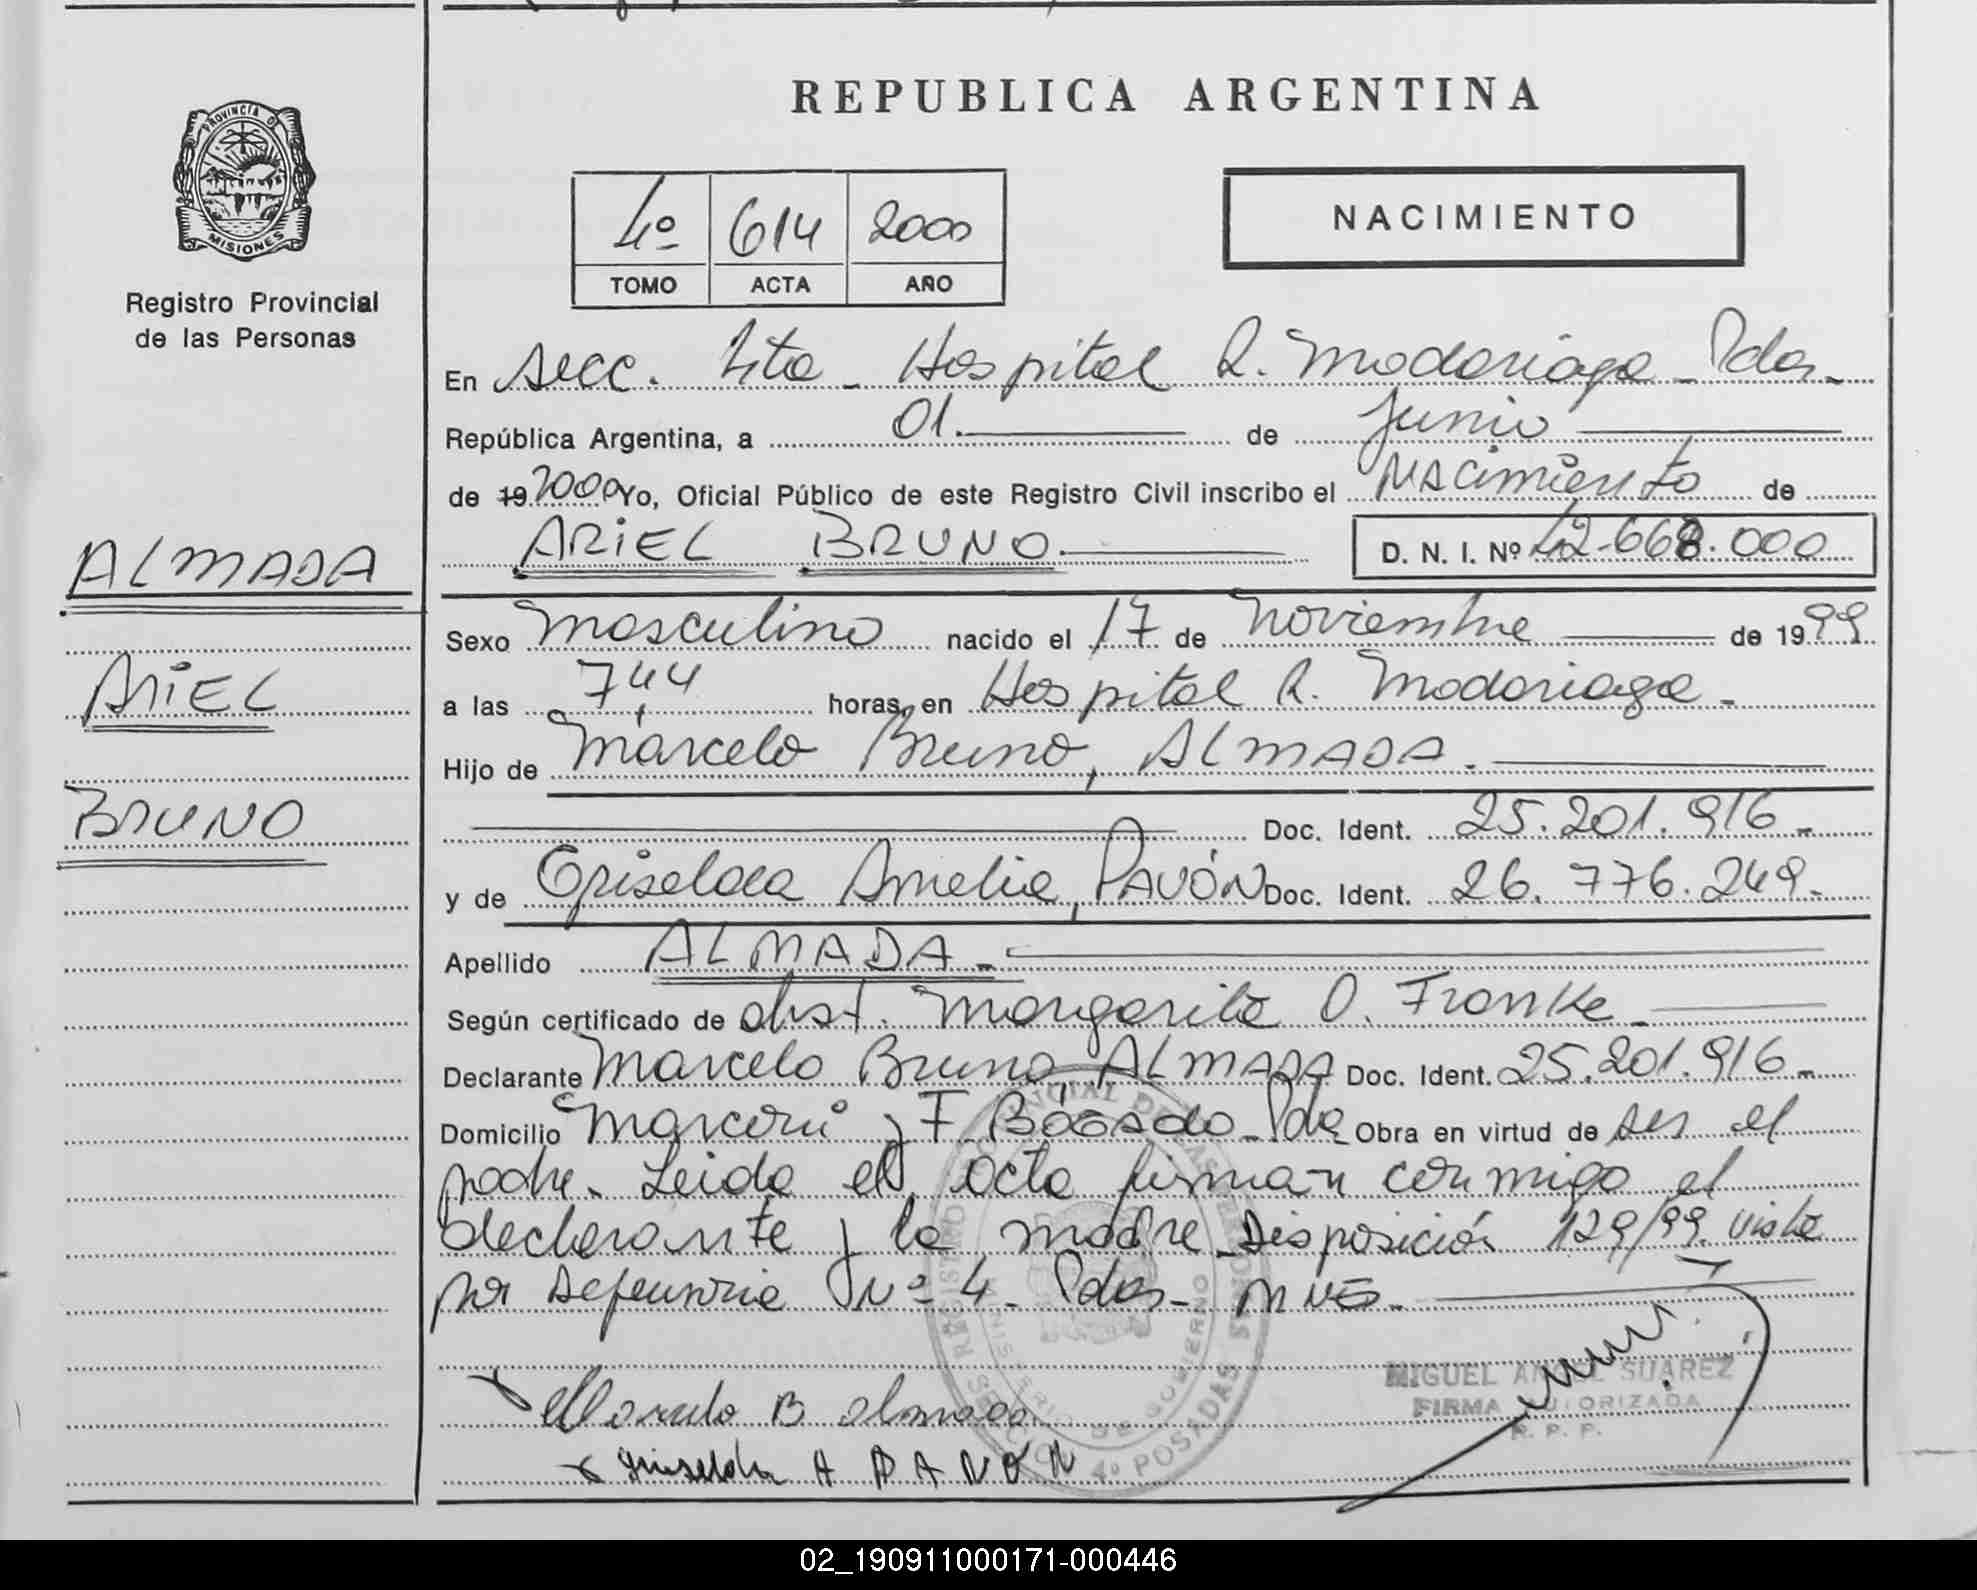 REPUBLICA ARGENTINA
PROVINCIA DE
MISIONES
Registro Provincial
de las Personas
4º 614 2000
TOMO ACTA AÑO
NACIMIENTO
En Secc. 4ta - Hospital R. Madariaga - Pdas -
República Argentina, a 01. de Junio
de 19 2000 Yo, Oficial Público de este Registro Civil inscribo el Nacimiento de
ARIEL BRUNO. D. N. I. Nº 42.668.000
ALMADA
ARIEL
BRUNO
Sexo Masculino nacido el 17 de Noviembre de 1999
a las 7,44 horas, en Hospital R. Madariaga -
Hijo de Marcelo Bruno, ALMADA.
Doc. Ident. 25.201.916 -
y de Griselda Amelia, PAVÓN Doc. Ident. 26.776.249 -
Apellido ALMADA -
Según certificado de obst. Margarita O. Franke -
Declarante Marcelo Bruno ALMADA Doc. Ident. 25.201.916 -
Domicilio Marconi y F. Bogado - Pdas Obra en virtud de ser el
padre. Leida el acta firman conmigo el
declarante y la madre - Disposición 129/99. Visto
por Defensoria Nº 4 - Pdas - Mnes.
REGISTRO PROVINCIAL DE LAS PERSONAS
MINISTERIO DE GOBIERNO
SECCION 4º POSADAS
MIGUEL ANGEL SUAREZ
FIRMA AUTORIZADA
R. P. P.
x Marcelo B almada
x Griselda A PAVON
02_190911000171-000446